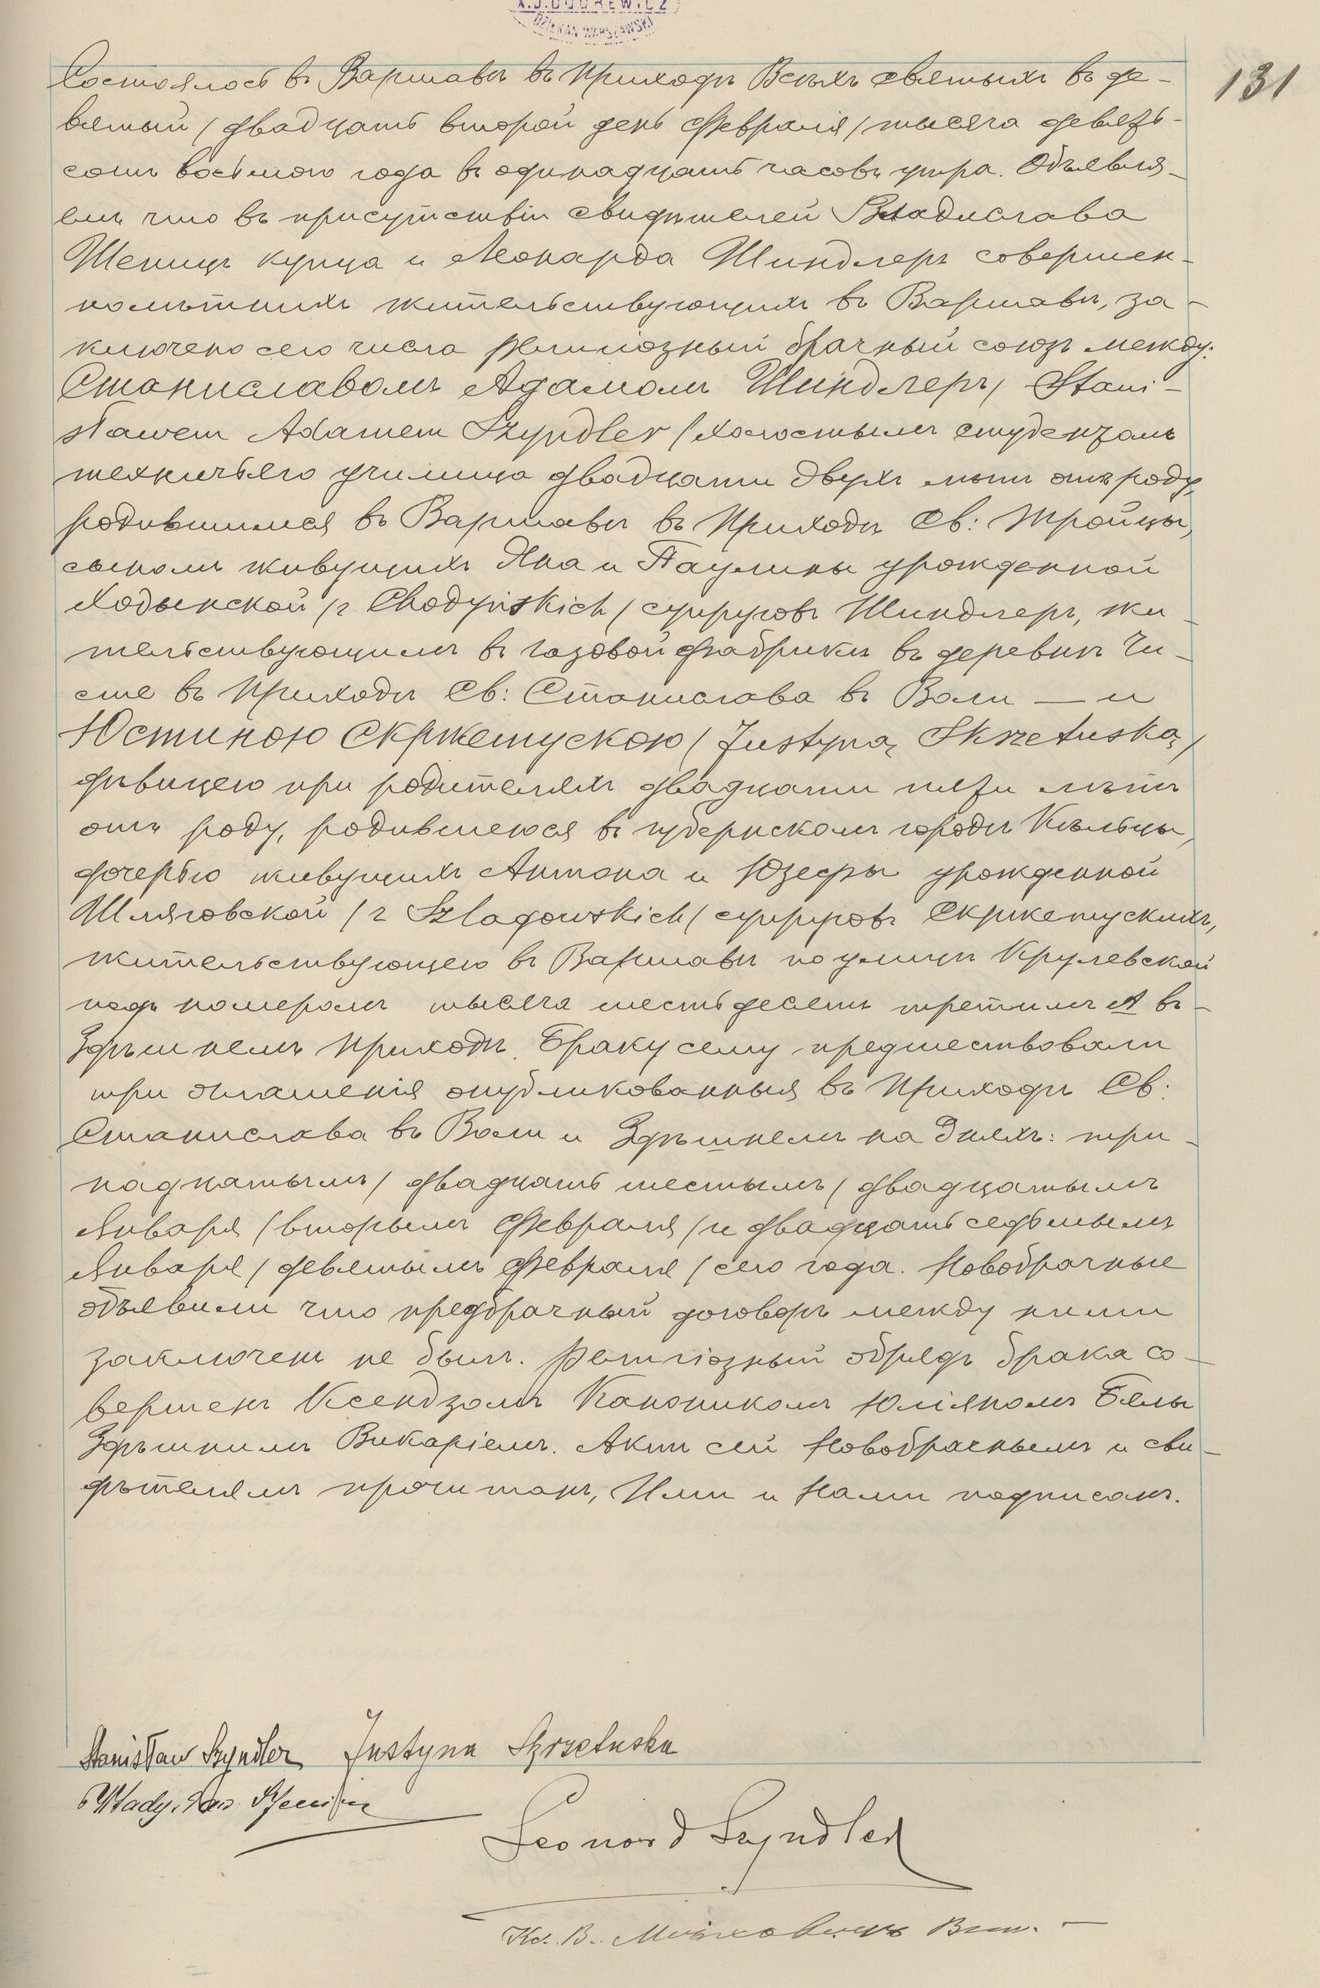 X.J.DUDREWICZ
DZIEKAN WARSZAWSKI
131
Состоялось въ Варшавѣ въ Приходѣ Всѣхъ Святыхъ въ де-
вятый / двадцать второй день Февраля / тысяча девять-
сотъ восьмого года въ одинадцать часовъ утра. Объявля-
емъ что въ присутствіи свидѣтелей Владислава
Шеницъ купца и Леонарда Шиндлеръ совершен-
нолѣтнихъ жительствующихъ въ Варшавѣ, за-
ключено сего числа религіозный брачный союзъ между:
Станиславомъ Адамомъ Шиндлеръ / Stani-
sławem Adamem Szyndler / холостымъ студентомъ
училища двадцати двухъ лѣтъ отъ роду,
родившимся въ Варшавѣ въ Приходѣ Св: Тройцы,
сыномъ живущихъ Яна и Паулины урожденной
Ходынской / z Chodyńskich / супруговъ Шиндлеръ, жи-
тельствующимъ въ газовой фабрикѣ въ деревнѣ Чи-
сте въ Приходѣ Св: Станислава въ Воли — и
Юстиною Скржетускою / Justyną Skrzetuską /
дѣвицею при родителяхъ двадцати пяти лѣтъ
отъ роду, родившеюся въ губернскомъ городѣ Кѣльцы,
дочерью живущихъ Антона и Юзефы урожденной
Шляговской / z Szlagowskich / супруговъ Скржетускихъ,
жительствующею въ Варшавѣ по улицѣ Крулевской
подъ номеромъ тысяча шестьдесятъ третимъ А въ
Здѣшнемъ Приходѣ. Браку сему предшествовали
три оглашенія опубликованныя въ Приходѣ Св:
Станислава въ Воли и Здѣшнемъ на дняхъ: три-
надцатымъ / двадцать шестымъ / двадцатымъ
Января / вторымъ Февраля / и двадцать седьмымъ
Января / девятымъ Февраля / сего года. Новобрачные
объявили что предбрачный договоръ между ними
заключенъ не былъ. Религіозный обрядъ брака со-
вершенъ Ксендзомъ Каноникомъ Юліяномъ Бялы
Здѣшнимъ Викаріемъ. Актъ сей Новобрачнымъ и сви-
дѣтелямъ прочитанъ, Ими и Нами подписанъ.
Stanisław Szyndler Justyna Skrzetuska
Leonard Szyndler
Кс. В.